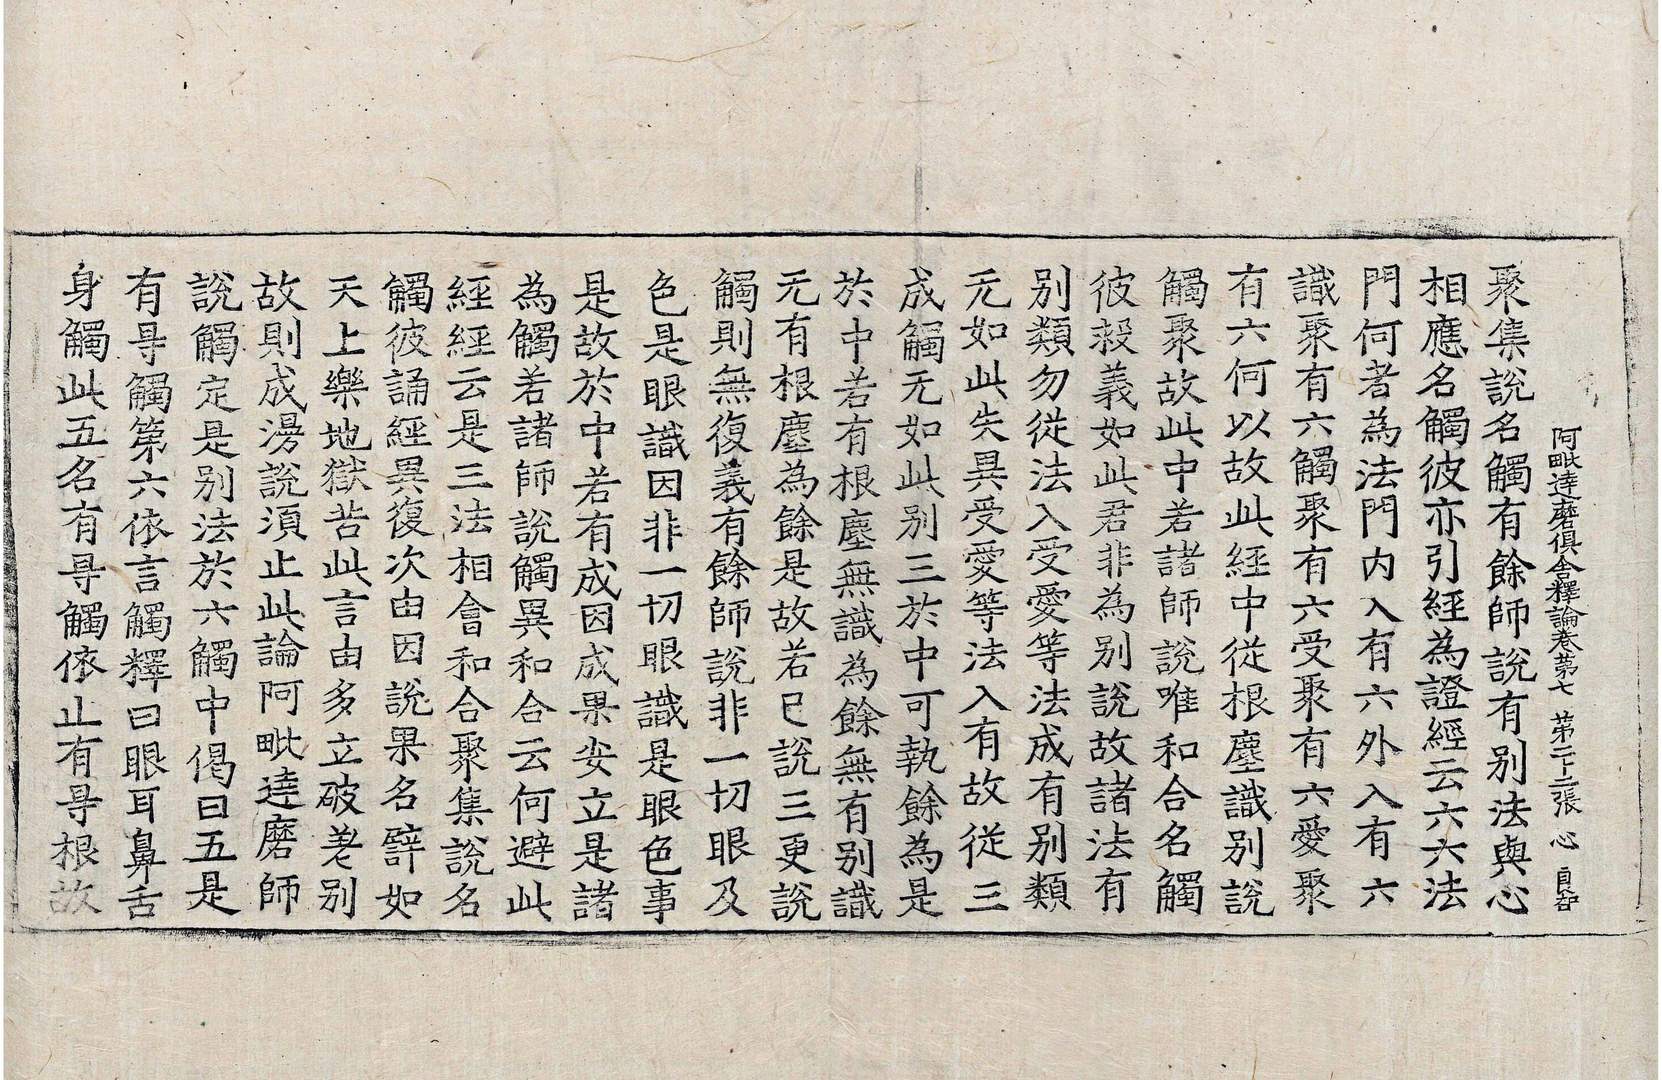 阿毗達磨俱舍釋論卷第七 第二十二張 心
聚集說名觸有餘師說有別法與心
相應名觸彼亦引經為證經云六六法
門何者為法門内入有六外入有六
識聚有六觸聚有六受聚有六愛聚
有六何以故此經中從根塵識別說
觸聚故此中若諸師說唯和合名觸
彼救義如此君非為別說故諸法有
別類勿從法入受愛等法成有別類
无如此失異受愛等法入有故從三
成觸无如此別三於中可執餘為是
於中若有根塵無識為餘無有別識
无有根塵為餘是故若已說三更說
觸則無復義有餘師說非一切眼及
色是眼識因非一切眼識是眼色事
是故於中若有成因成果安立是諸
為觸若諸師說觸異和合云何避此
經經云是三法相會和合聚集說名
觸彼誦經異復次由因說果名譬如
天上樂地獄苦此言由多立破老別
故則成漫說須止此論阿毗達磨師
說觸定是別法於六觸中偈曰五是
有㝵觸第六依言觸釋曰眼耳鼻舌
身觸此五名有㝵觸依止有㝵根故